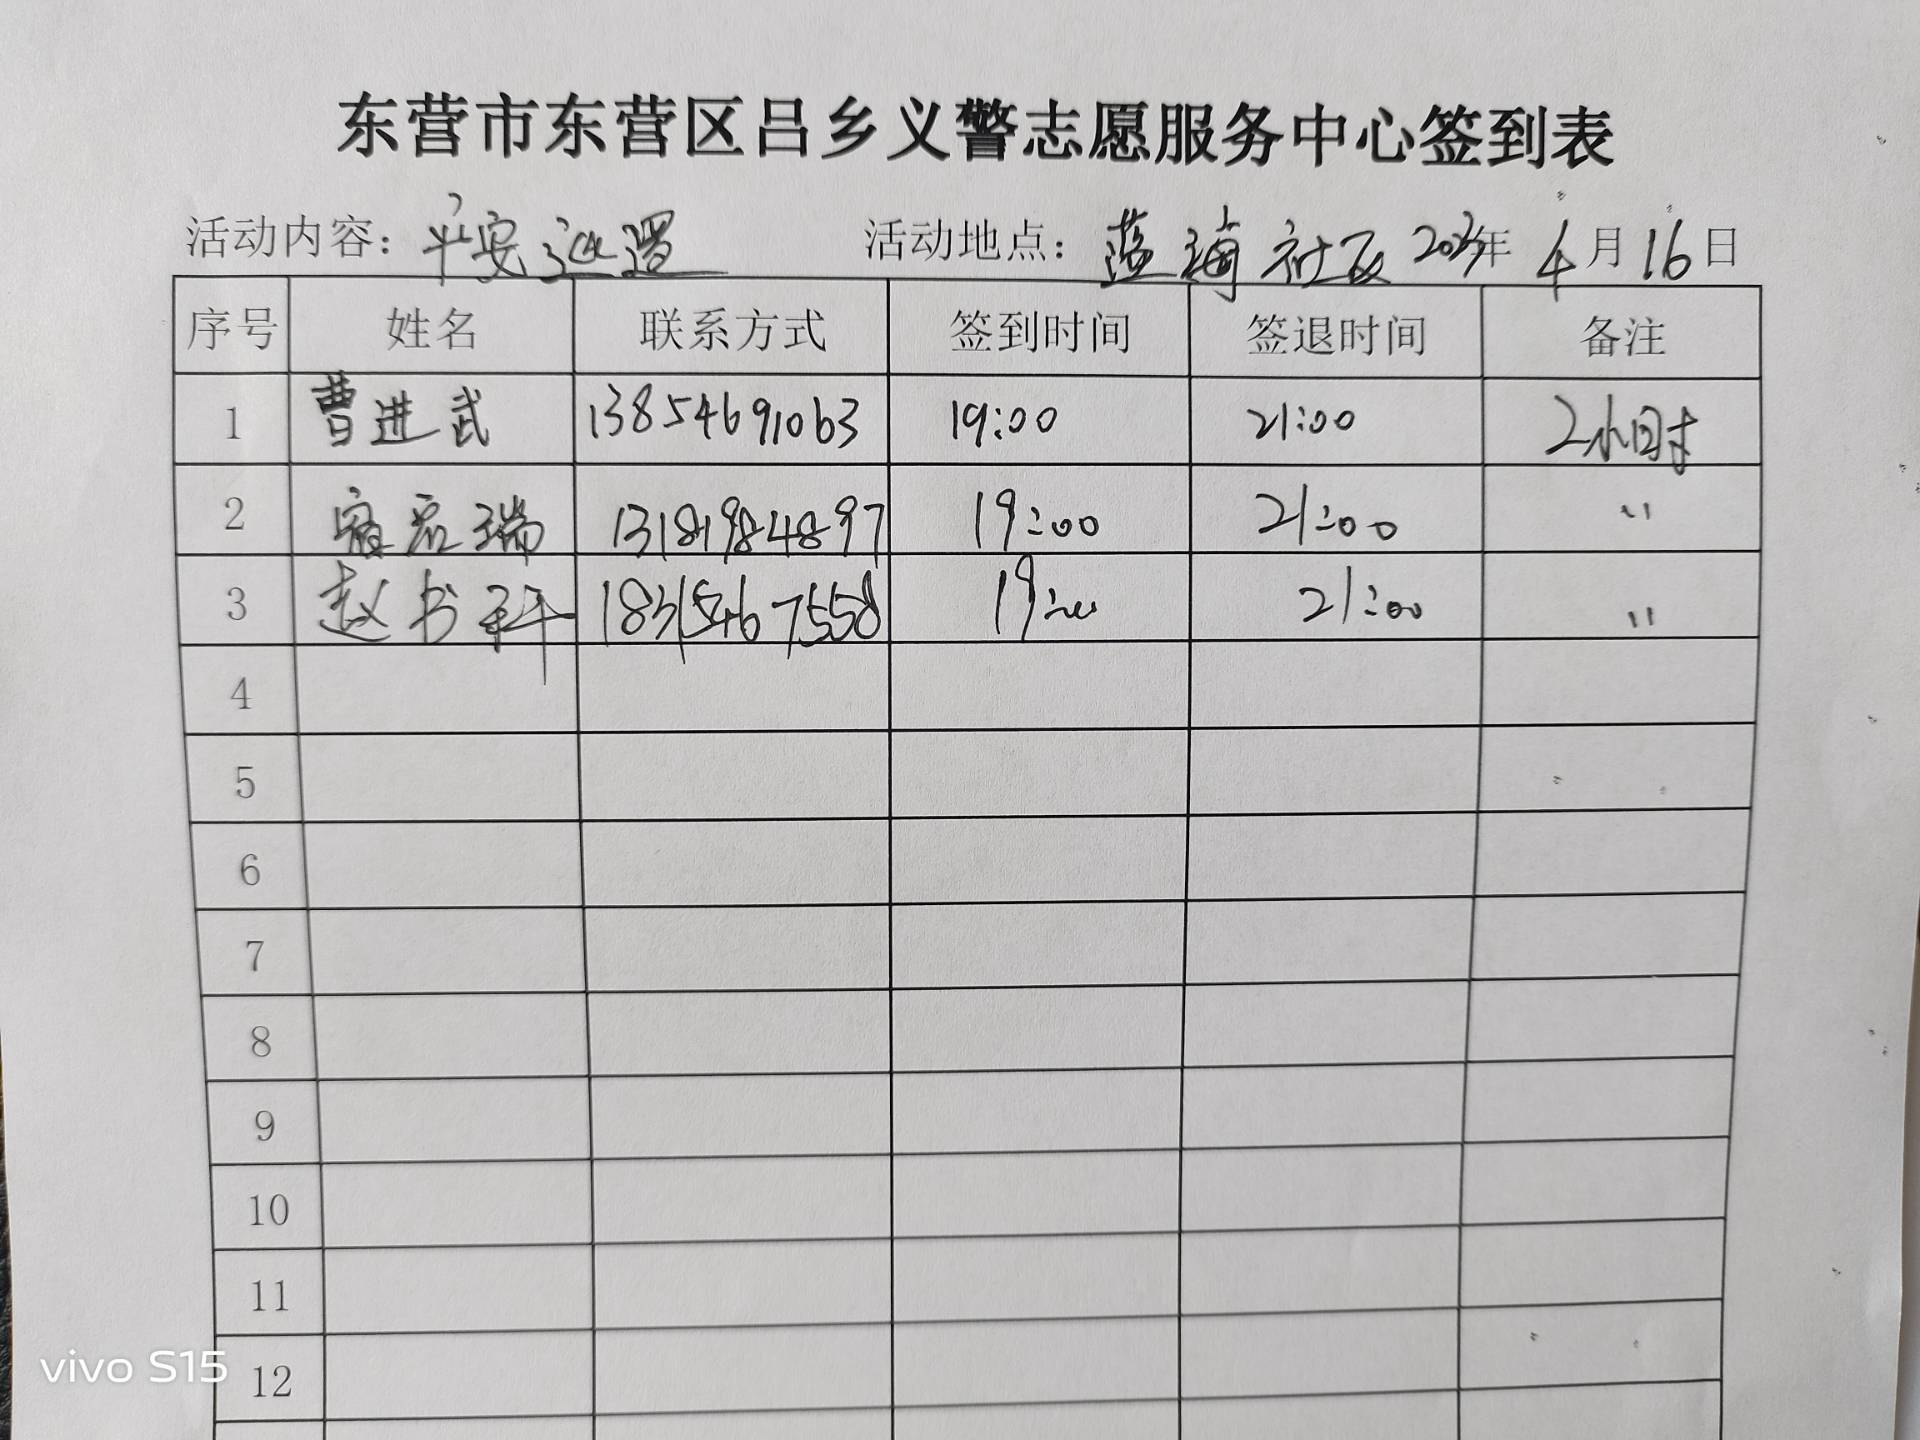 东营市东营区吕乡义警志愿服务中心签到表
活动内容：平安巡逻 活动地点：蓝海社区 2023年 4月16日
序号 姓名 联系方式 签到时间 签退时间 备注
1 曹进武 13854691063 19:00 21:00 2小时
2 瑞 13181984897 19:00 21:00 〃
3 赵书 18315467558 19:00 21:00 〃
4
5
6
7
8
9
10
11
12
vivo S15